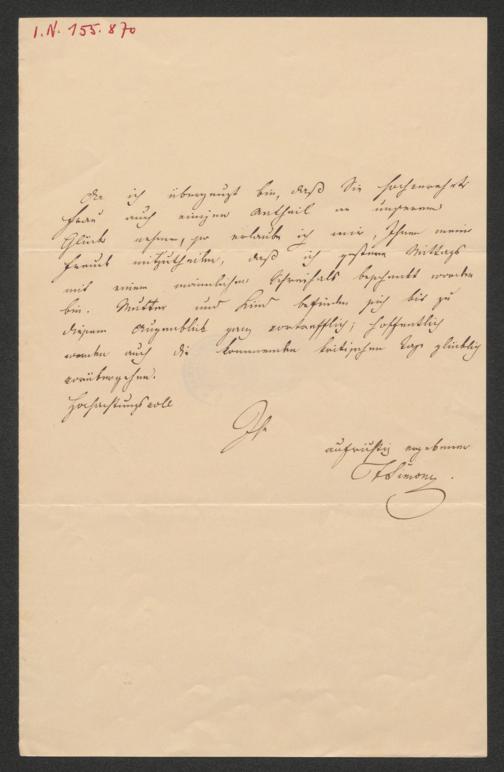 I. N. 155.870
Da ich überzeugt bin, daß Sie hochverehrte
Frau auch einigen Antheil an unserem
Glück nehmen, so erlaube ich mir, Ihnen meine
Freude mitzutheilen, daß ich gestern Mittags
mit einem männlichen Schreihals beschenkt worden
bin. Mutter und Kind befinden sich bis zu
diesem Augenblick ganz vortrefflich; hoffentlich
werden auch die kommenden kritischen Tage glücklich
vorübergehen.
Hochachtungsvoll
Ihr
aufrichtig ergebener
Simony.